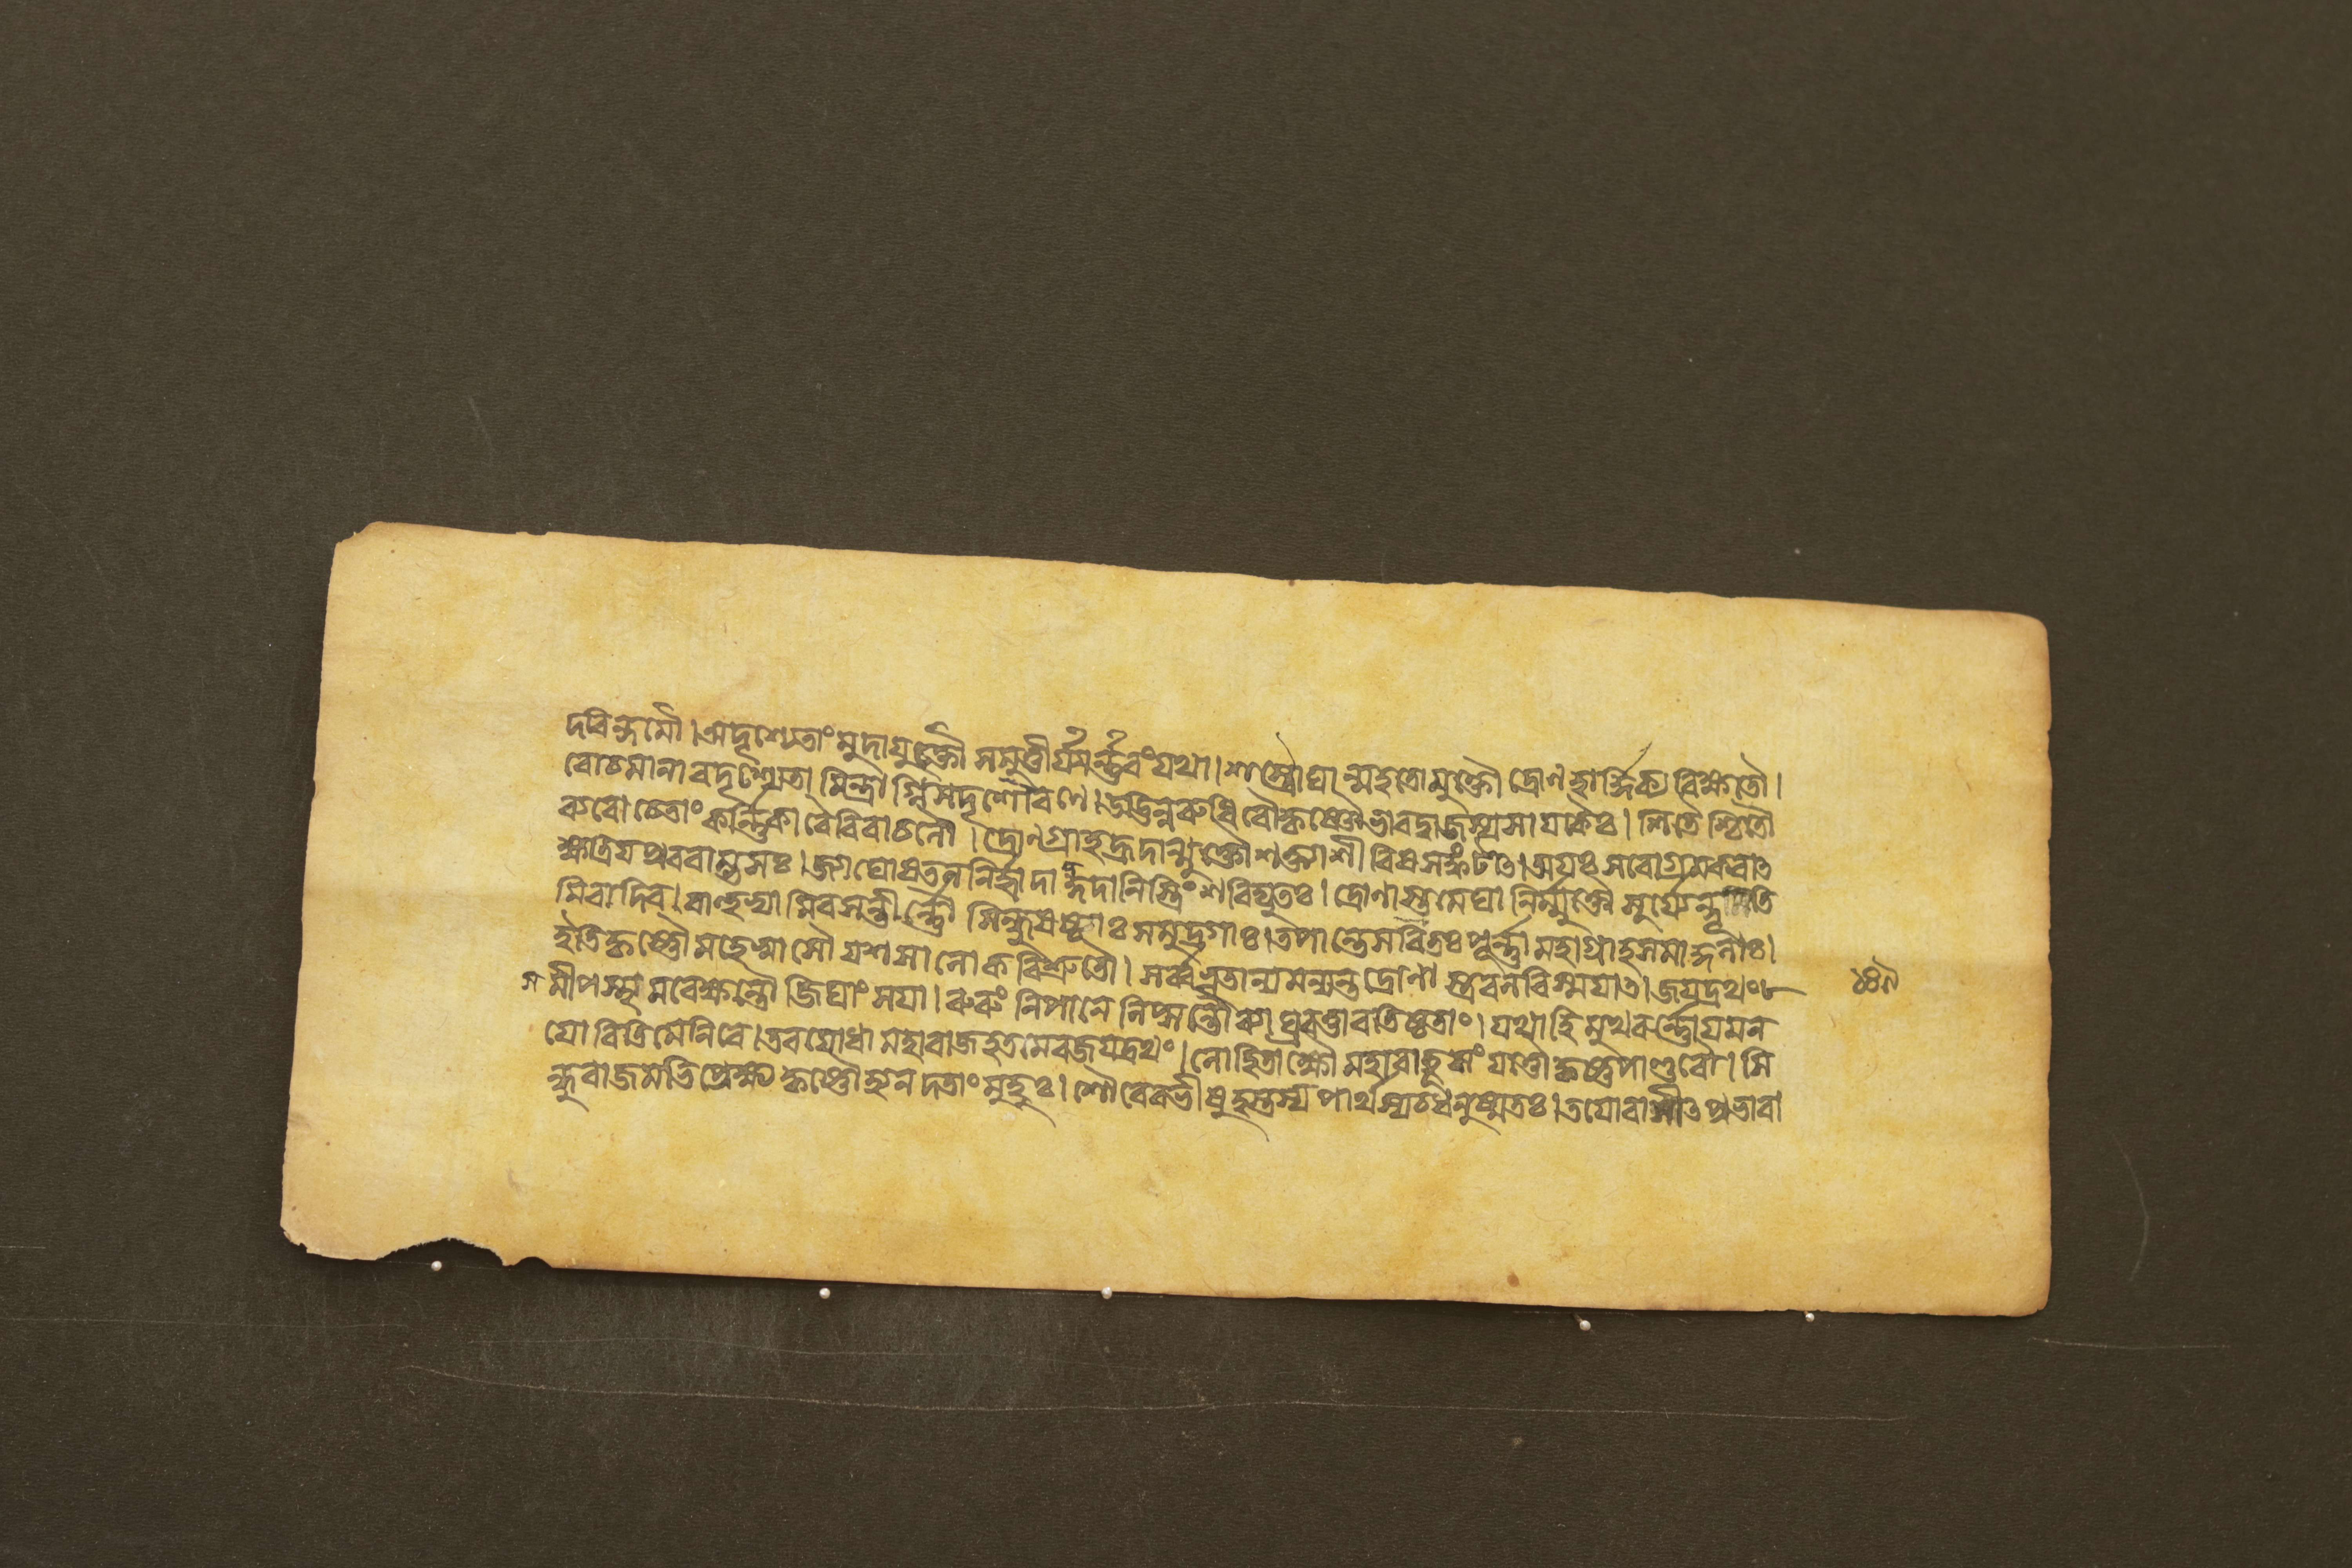 দরিন্দমৌ। অদৃশ্যেতাং মুদাযুক্তৌ সমুত্তীর্য্যার্ন্নবং যথা। শস্ত্রৌঘান্মহতো মুক্তৌ দ্রোণহার্দ্দিক্য বিক্ষতৌ।
রোচমানাবদৃশ্যেতামিন্দ্রাগ্নিসদৃশৌ রণে। উদ্ভিন্নরুধিরৌ কৃষ্ণৌ ভারদ্বাজস্য সায়কৈঃ। শিতৈশ্চিতৌ
ব্যরোচেতাং কর্ন্নিকারৈরিবাচলৌ। দ্রোণগ্রাহহ্রদান্মুক্তৌ শক্ত্যাশীবিষসঙ্কটাৎ। অয়ঃসরোগ্রমকরাৎ
ক্ষত্রিয়প্রবরাম্ভসঃ। জ্যাঘোষতলনির্হ্রাদাদ্গদানিস্ত্রিংশবিদ্যুতঃ। দ্রোণাস্ত্রমেঘান্নির্ম্মুক্তৌ সূর্য্যেন্দূ তি
মিরাদিব। বাহুভ্যামিবসন্তীর্ন্নৌ সিন্ধুষষ্ঠাঃ সমুদ্রগাঃ। তপান্তেসরিতঃ পূর্ন্না মহাগ্রাহসমাকুলাঃ।
ইতিকৃষ্ণৌ মহেষ্বাসৌ যশসা লোকবিশ্রুতৌ। সর্ব্বভূতান্যমন্যন্ত দ্রোণাস্ত্রবলবিস্ময়াৎ। জয়দ্রথং
সমীপস্থমবেক্ষন্তৌ জিঘাংসয়া। রুরুং নিপানে লিপ্সন্তৌ ব্যাঘ্রবত্তাবতিষ্ঠতাং। যথাহি মুখবর্ন্নোয়মন
যোরিতিমেনিরে। তবযোধা মহারাজ হতমেবজয়দ্রথং। লোহিতাক্ষৌ মহাবাহূ সংযত্তৌ কৃষ্ণপাণ্ডবৌ। সি
ন্ধুরাজমভিপ্রেক্ষ্য হৃষ্টৌব্যনদতাং মুহুঃ। শৌরেরভীষুহস্তস্য পার্থস্যচধনুষ্মতঃ। তয়োরাসীৎপ্রভারা